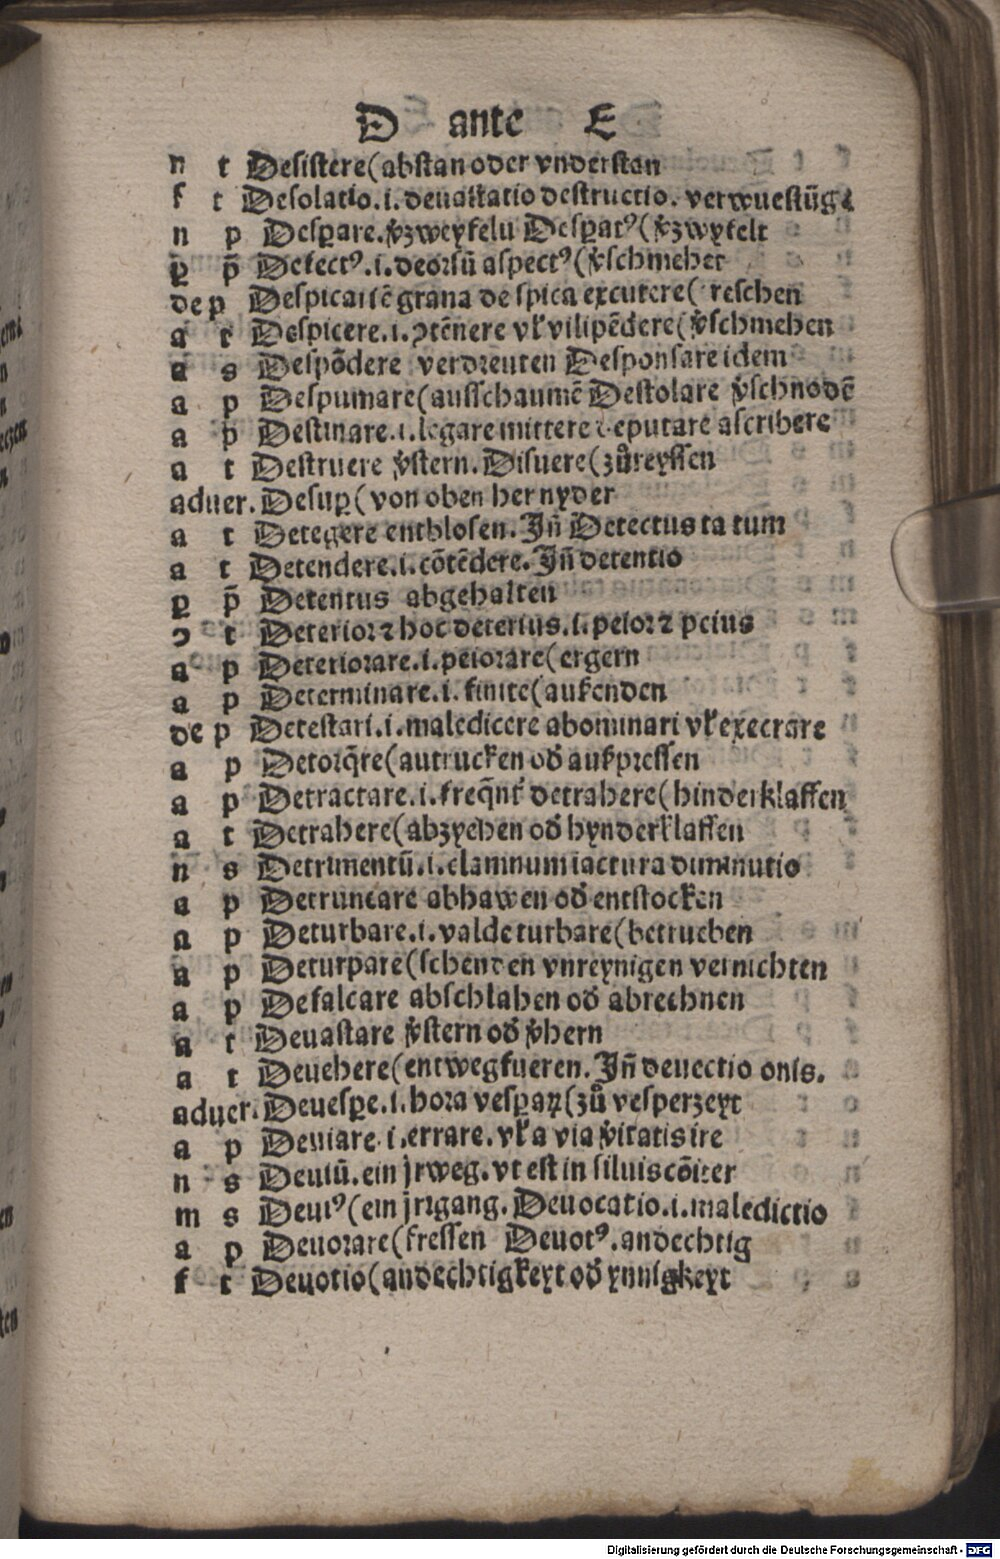 D ante E
n t Desistere(abstan oder vnderstan
f t Desolatio.i.deuastatio destructio. verwuestũg
n p Desꝑare.v̾zweyfeln Desꝑatꝰ(v̾zwyfelt
ꝑ p̄ Defectꝰ.i.deorsũ aspectꝰ(v̾schmeher
de p Despicari ē grana de spica excutere( reschen
a t Despicere.i.ꝯtēnere vl̕ vilipēdere(v̾schmehen
a s Despõdere verdreuten Desponsare idem
a p Despumare(ausschaumē Destolare v̾schnodē
a p Destinare.i.legare mittere deputare ascribere
a t Destruere v̾stern. Disuere(zůreyssen
aduer. Desuꝑ(von oben her nyder
a t Detegere entblosen. Jñ Detectus ta tum
a t Detendere.i.cõtēdere. Jñ detentio
ꝑ p̄ Detentus abgehalten
ꝯ t Deterior ⁊ hoc deterius.i.peior ⁊ peius
a p Deteriorare.i.peiorare(ergern
a p Determinare.i.finire(aufenden
de p Detestari.i.maledicere abominari vl̕ execrare
a p Detorq̄re(autrucken oď aufpressen
a p Detractare.i.freq̄nt̕ detrahere(hinderklaffen
a t Detrahere(abzyehen oď hynderklaffen
n s Detrimentũ.i.damnum iactura diminutio
a p Detruncare abhawen oď entstocken
a p Deturbare.i.valde turbare(betrueben
a p Deturpare(schenden vnreynigen vernichten
a p Defalcare abschlahen oď abrechnen
a t Deuastare v̾stern oď v̾hern
a t Deuehere(entwegfueren. Jñ deuectio onis.
aduer. Deuesꝑe.i.hora vesꝑaꝝ(zů vesperzeyt
a p Deuiare.i.errare.vl̕ a via v̾itatis ire
n s Deuiũ.ein jrweg.vt est in siluis cõiter
m s Deuiꝰ(ein jrigang. Deuocatio.i.maledictio
a p Deuorare(fressen Deuotꝰ.andechtig
f t Deuotio(andechtigkeyt oď ynnigkeyt
Digitalisierung gefördert durch die Deutsche Forschungsgemeinschaft - DFG